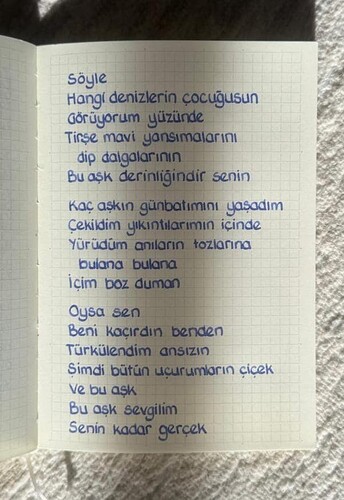 Söyle
Hangi denizlerin çocuğusun
Görüyorum yüzünde
Tirşe mavi yansımalarını
dip dalgalarının
Bu aşk derinliğindir senin
Kaç aşkın günbatımını yaşadım
Çekildim yıkıntılarımın içinde
Yürüdüm anıların tozlarına
bulana bulana
İçim boz duman
Oysa sen
Beni kaçırdın benden
Türkülendim ansızın
Şimdi bütün uçurumların çiçek
Ve bu aşk
Bu aşk sevgilim
Senin kadar gerçek